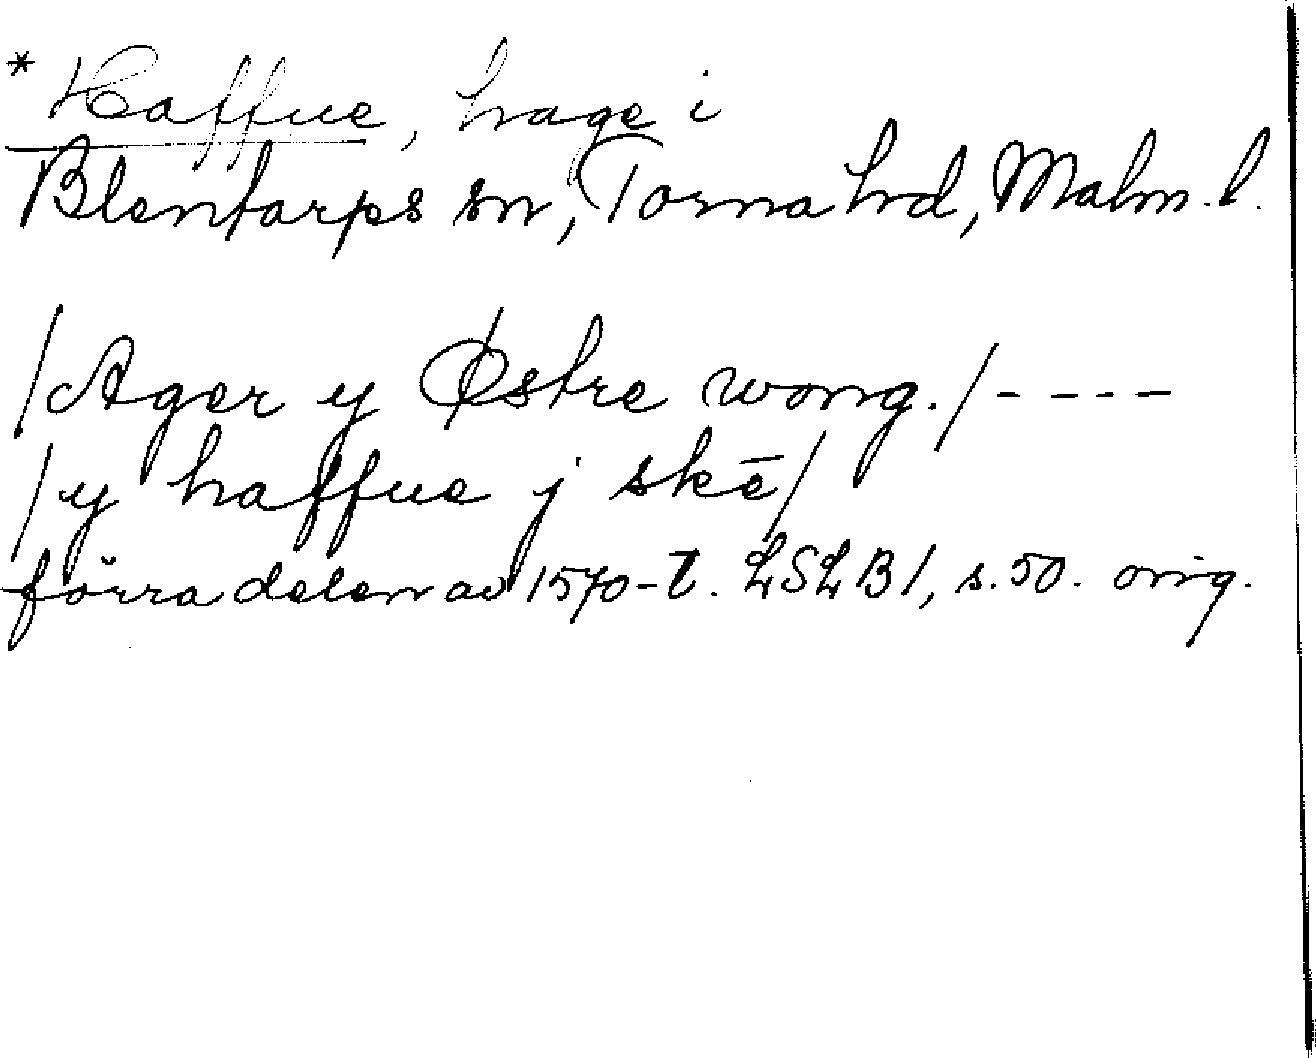 * Haffue, hage i
Blentarps sn, Torna hd, Malm. l.
/Ager y Østre wong./----
/y haffue j skē/
förra delen av 1570-t. LSLB1, s.50. orig.